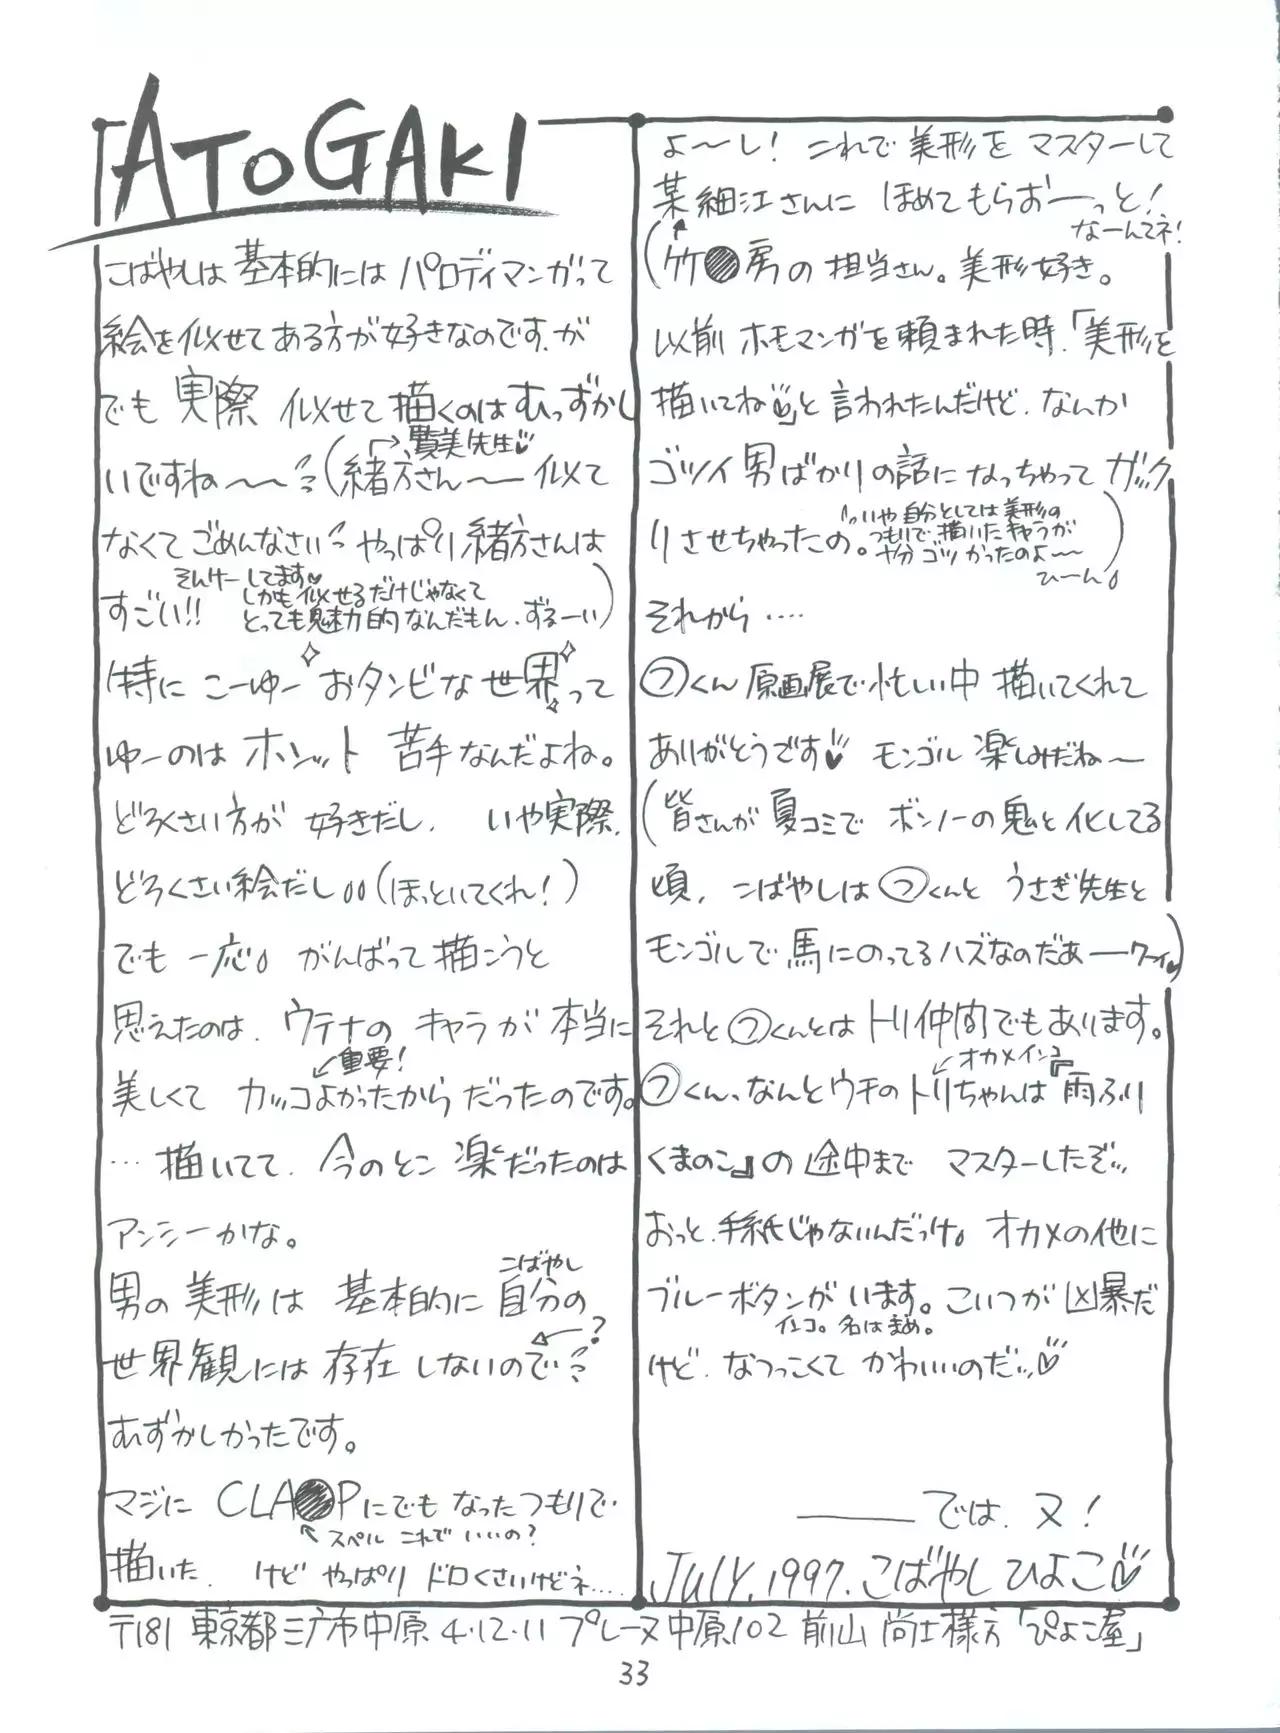 ATOGAKI
こばやしは基本的にはパロディマンガって
絵を似せてある方が好きなのです、が
でも実際 似せて描くのはむっずかし
いですね〜〜(緒方さん〜似て
→賢美先生♡
なくてごめんなさい やっぱり緒方さんは
すごい!!
そんけーしてます♡
しかも似せるだけじゃなくて
とっても魅力的なんだもん、ずるーい)
特にこーゆー おタンビな世界って
ゆーのはホンット 苦手なんだよね。
どろくさい方が 好きだし、いや実際、
どろくさい絵だし(ほっといてくれ!)
でも一応。がんばって描こうと
思えたのは、ウテナのキャラが本当に
美しくて カッコよかったからだったのです。
↙重要!
…描いてて、今のとこ楽だったのは
アンシーかな。
男の美形は 基本的に自分の
こばやし
世界観には存在しないので
←?
むずかしかったです。
マジに CLA●Pにでもなったつもりで
↖スペル これでいいの?
描いた、けど やっぱり ドロくさいけどネ….
よ〜し! これで美形をマスターして
某細江さんに ほめてもらおーっと!
なーんてネ!
(竹●房の担当さん。美形好き。
以前ホモマンガを頼まれた時、「美形を
描いてね♡」と言われたんだけど、なんか
ゴツイ男ばかりの話になっちゃって ガック
リさせちゃったの。
いや自分としては美形の
つもりで描いたキャラが
やがゴツかったのよ〜
ひーん。)
それから‥‥
㋫くん 原画展で忙しい中 描いてくれて
ありがとうです♡ モンゴル楽しみだね〜
(皆さんが夏コミで ボンノーの鬼と化してる
頃、こばやしは㋫くんと うさぎ先生と
モンゴルで馬にのってるハズなのだあーワーイ♡)
それと㋫くんとはトリ仲間でもあります。
㋫くん、なんとウチのトリちゃんは『雨ふり
↙オカメインコ
くまのこ』の途中まで マスターしたぞ
おっと、手紙じゃないんだっけ。オカメの他に
ブルーボタンがいます。こいつが凶暴だ
インコ。名はまめ。
けど、なつっこくて かわいいのだ♡
――では、又!
JULY.1997.こばやしひよこ♡
〒181 東京都三鷹市中原4・12・11 プレーヌ中原102 前山 尚士様方「ぴよこ屋」
33